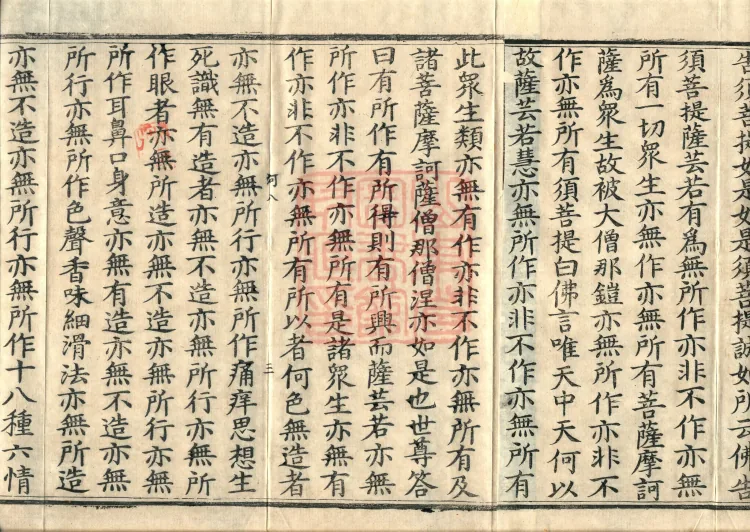 告須菩提如是如是須菩提誠如所云佛告
須菩提薩芸若有為無所作亦非不作亦無
所有一切眾生亦無作亦無所有菩薩摩訶
薩為眾生故被大僧那鎧亦無所作亦非不
作亦無所有須菩提白佛言唯天中天何以
故薩芸若慧亦無所作亦非不作亦無所有
此眾生類亦無有作亦非不作亦無所有及
諸菩薩摩訶薩僧那僧涅亦如是也世尊答
曰有所作有所得則有所興而薩芸若亦無
所作亦非不作亦無所有是諸眾生亦無有
作亦非不作亦無所有所以者何色無造者
三
亦無不造亦無所行亦無所作痛痒思想生
死識無有造者亦無不造亦無所行亦無所
作眼者亦無所造亦無不造亦無所行亦無
所作耳鼻口身意亦無有造亦無不造亦無
所行亦無所作色聲香味細滑法亦無所造
亦無不造亦無所行亦無所作十八種六情